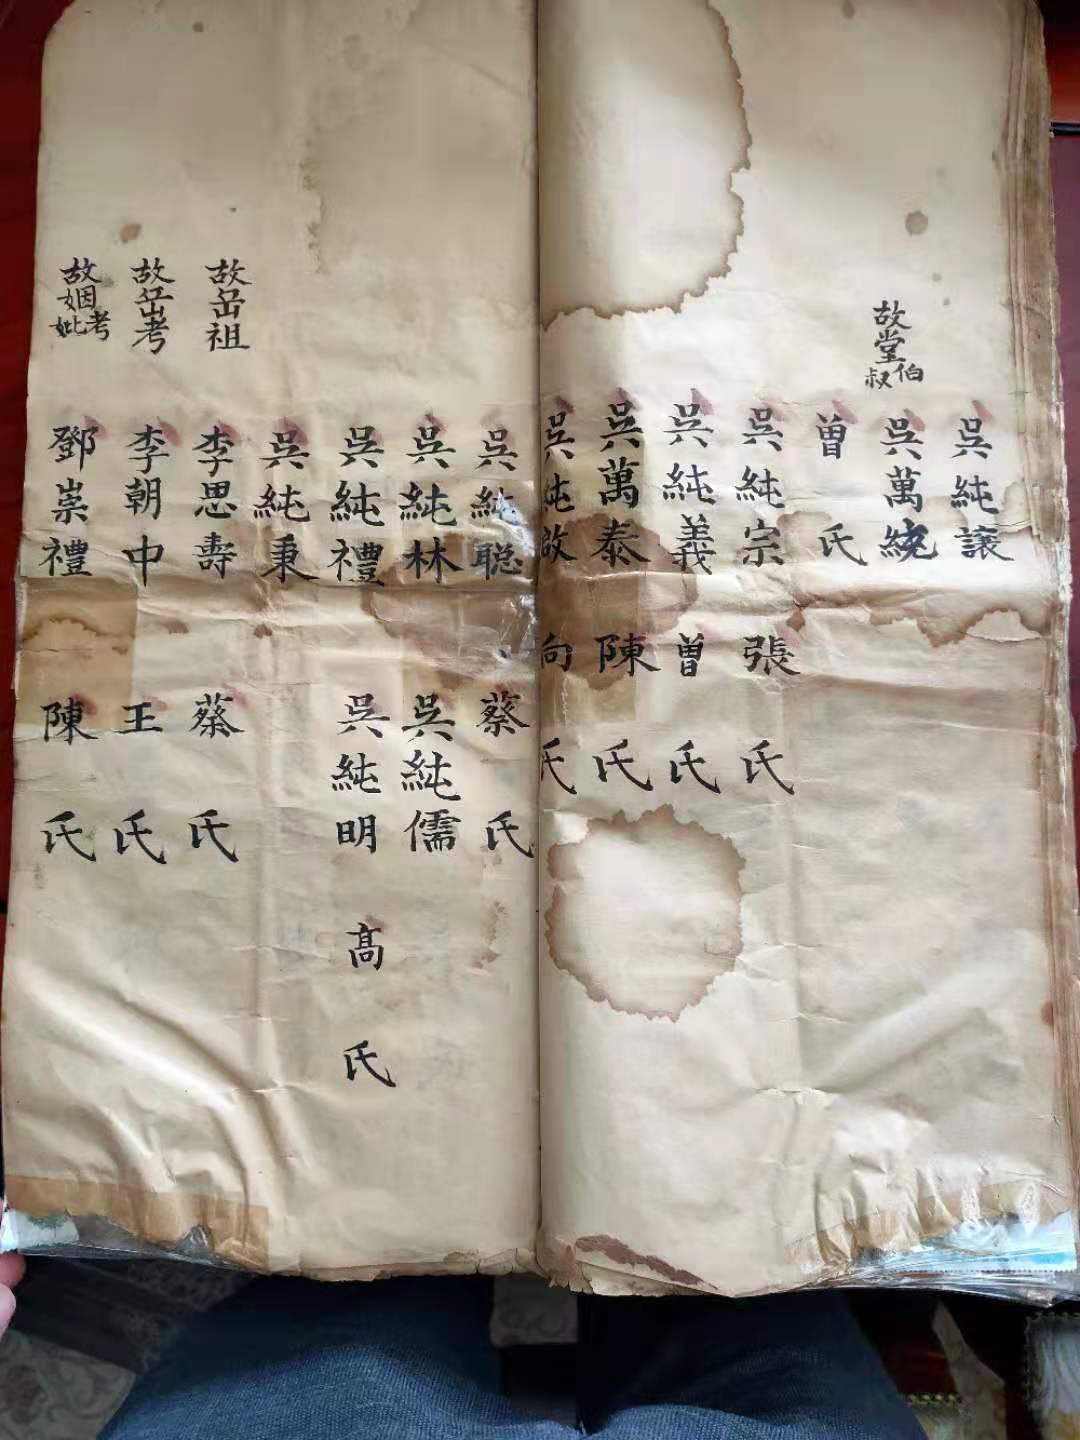 吳純讓
故堂伯叔 吳萬統
曾氏
吳純宗 張氏
吳純義 曾氏
吳萬泰 陳氏
吳純啟 向氏
吳純聰 蔡氏
吳純林 吳純儒
吳純禮 吳純明 髙氏
吳純秉
故岳祖 李思壽 蔡氏
故岳考 李朝中 王氏
故姻考妣 鄧崇禮 陳氏